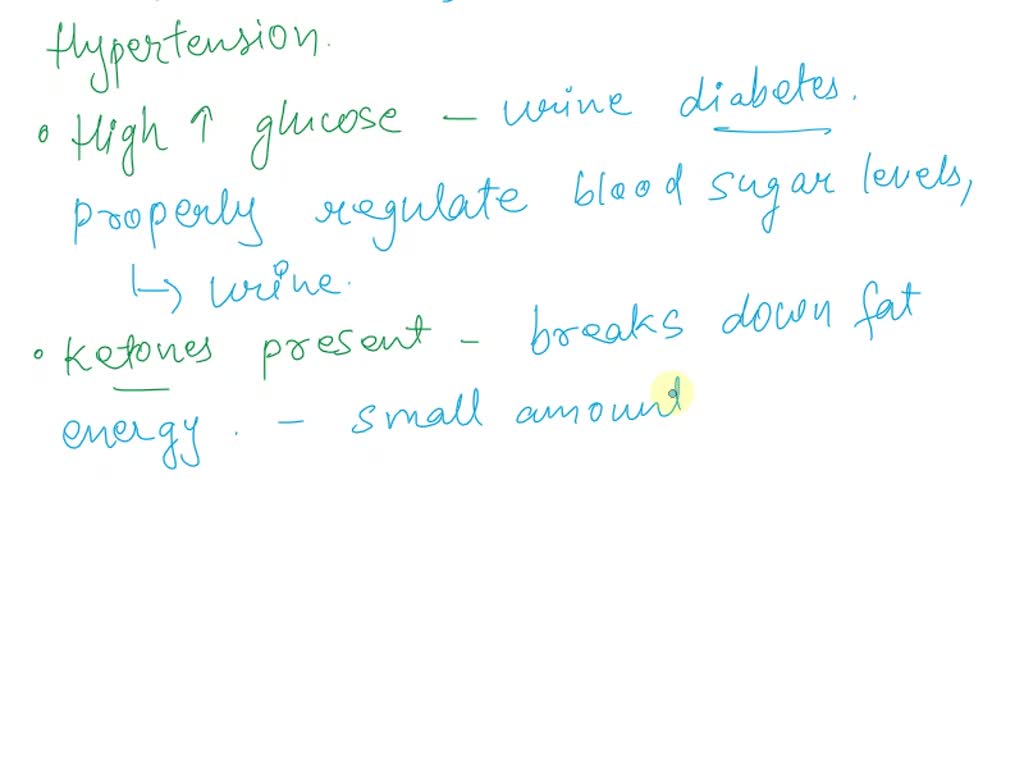 Hypertension.
• High ↑ glucose – urine diabetes.
properly regulate blood sugar levels,
↳ urine.
• Ketones present – breaks down fat
energy. – small amount